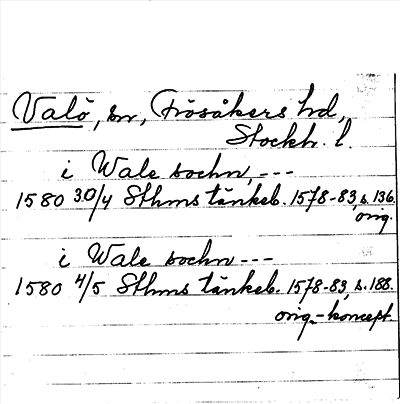 Valö, sn, Frösåkers hd,
Stockh. l.
i Wale sochn, ---
1580 30/4 Sthms tänkeb. 1578-83, s. 136.
orig.
i Wale sochn ---
1580 4/5 Sthms tänkeb. 1578-83, s. 188.
orig.-koncept.